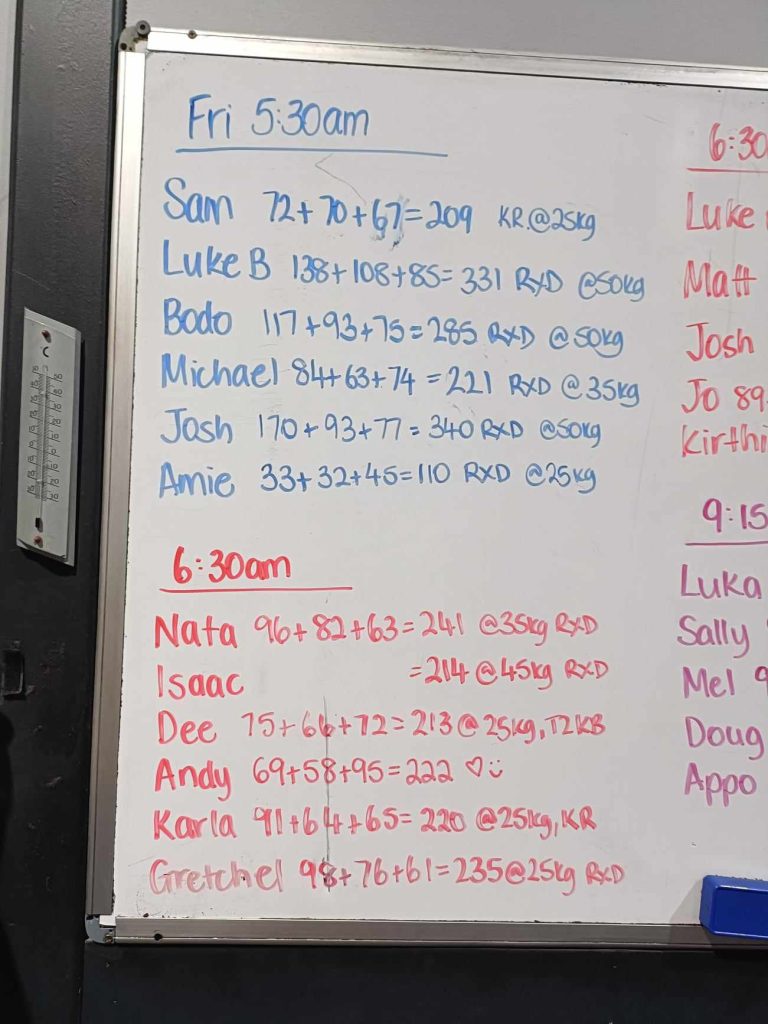 Fri 5:30am
Sam 72+70+67=209 KR.@25kg
Luke B 138+108+85=331 RXD @50kg
Bodo 117+93+75=285 RXD @50kg
Michael 84+63+74=221 RXD @35kg
Josh 170+93+77=340 RXD @50kg
Amie 33+32+45=110 RXD @25kg
6:30am
Nata 96+82+63=241 @35kg RXD
Isaac =214@45kg RXD
Dee 75+66+72=213@25kg, T2KB
Andy 69+58+95=222 ♡
Karla 91+64+65=220 @25kg, KR
Gretchel 98+76+61=235@25kg RXD
6:30
Luke
Matt
Josh
Jo 89
Kirthi
9:15
Luka
Sally
Mel 9
Doug
Appo
C